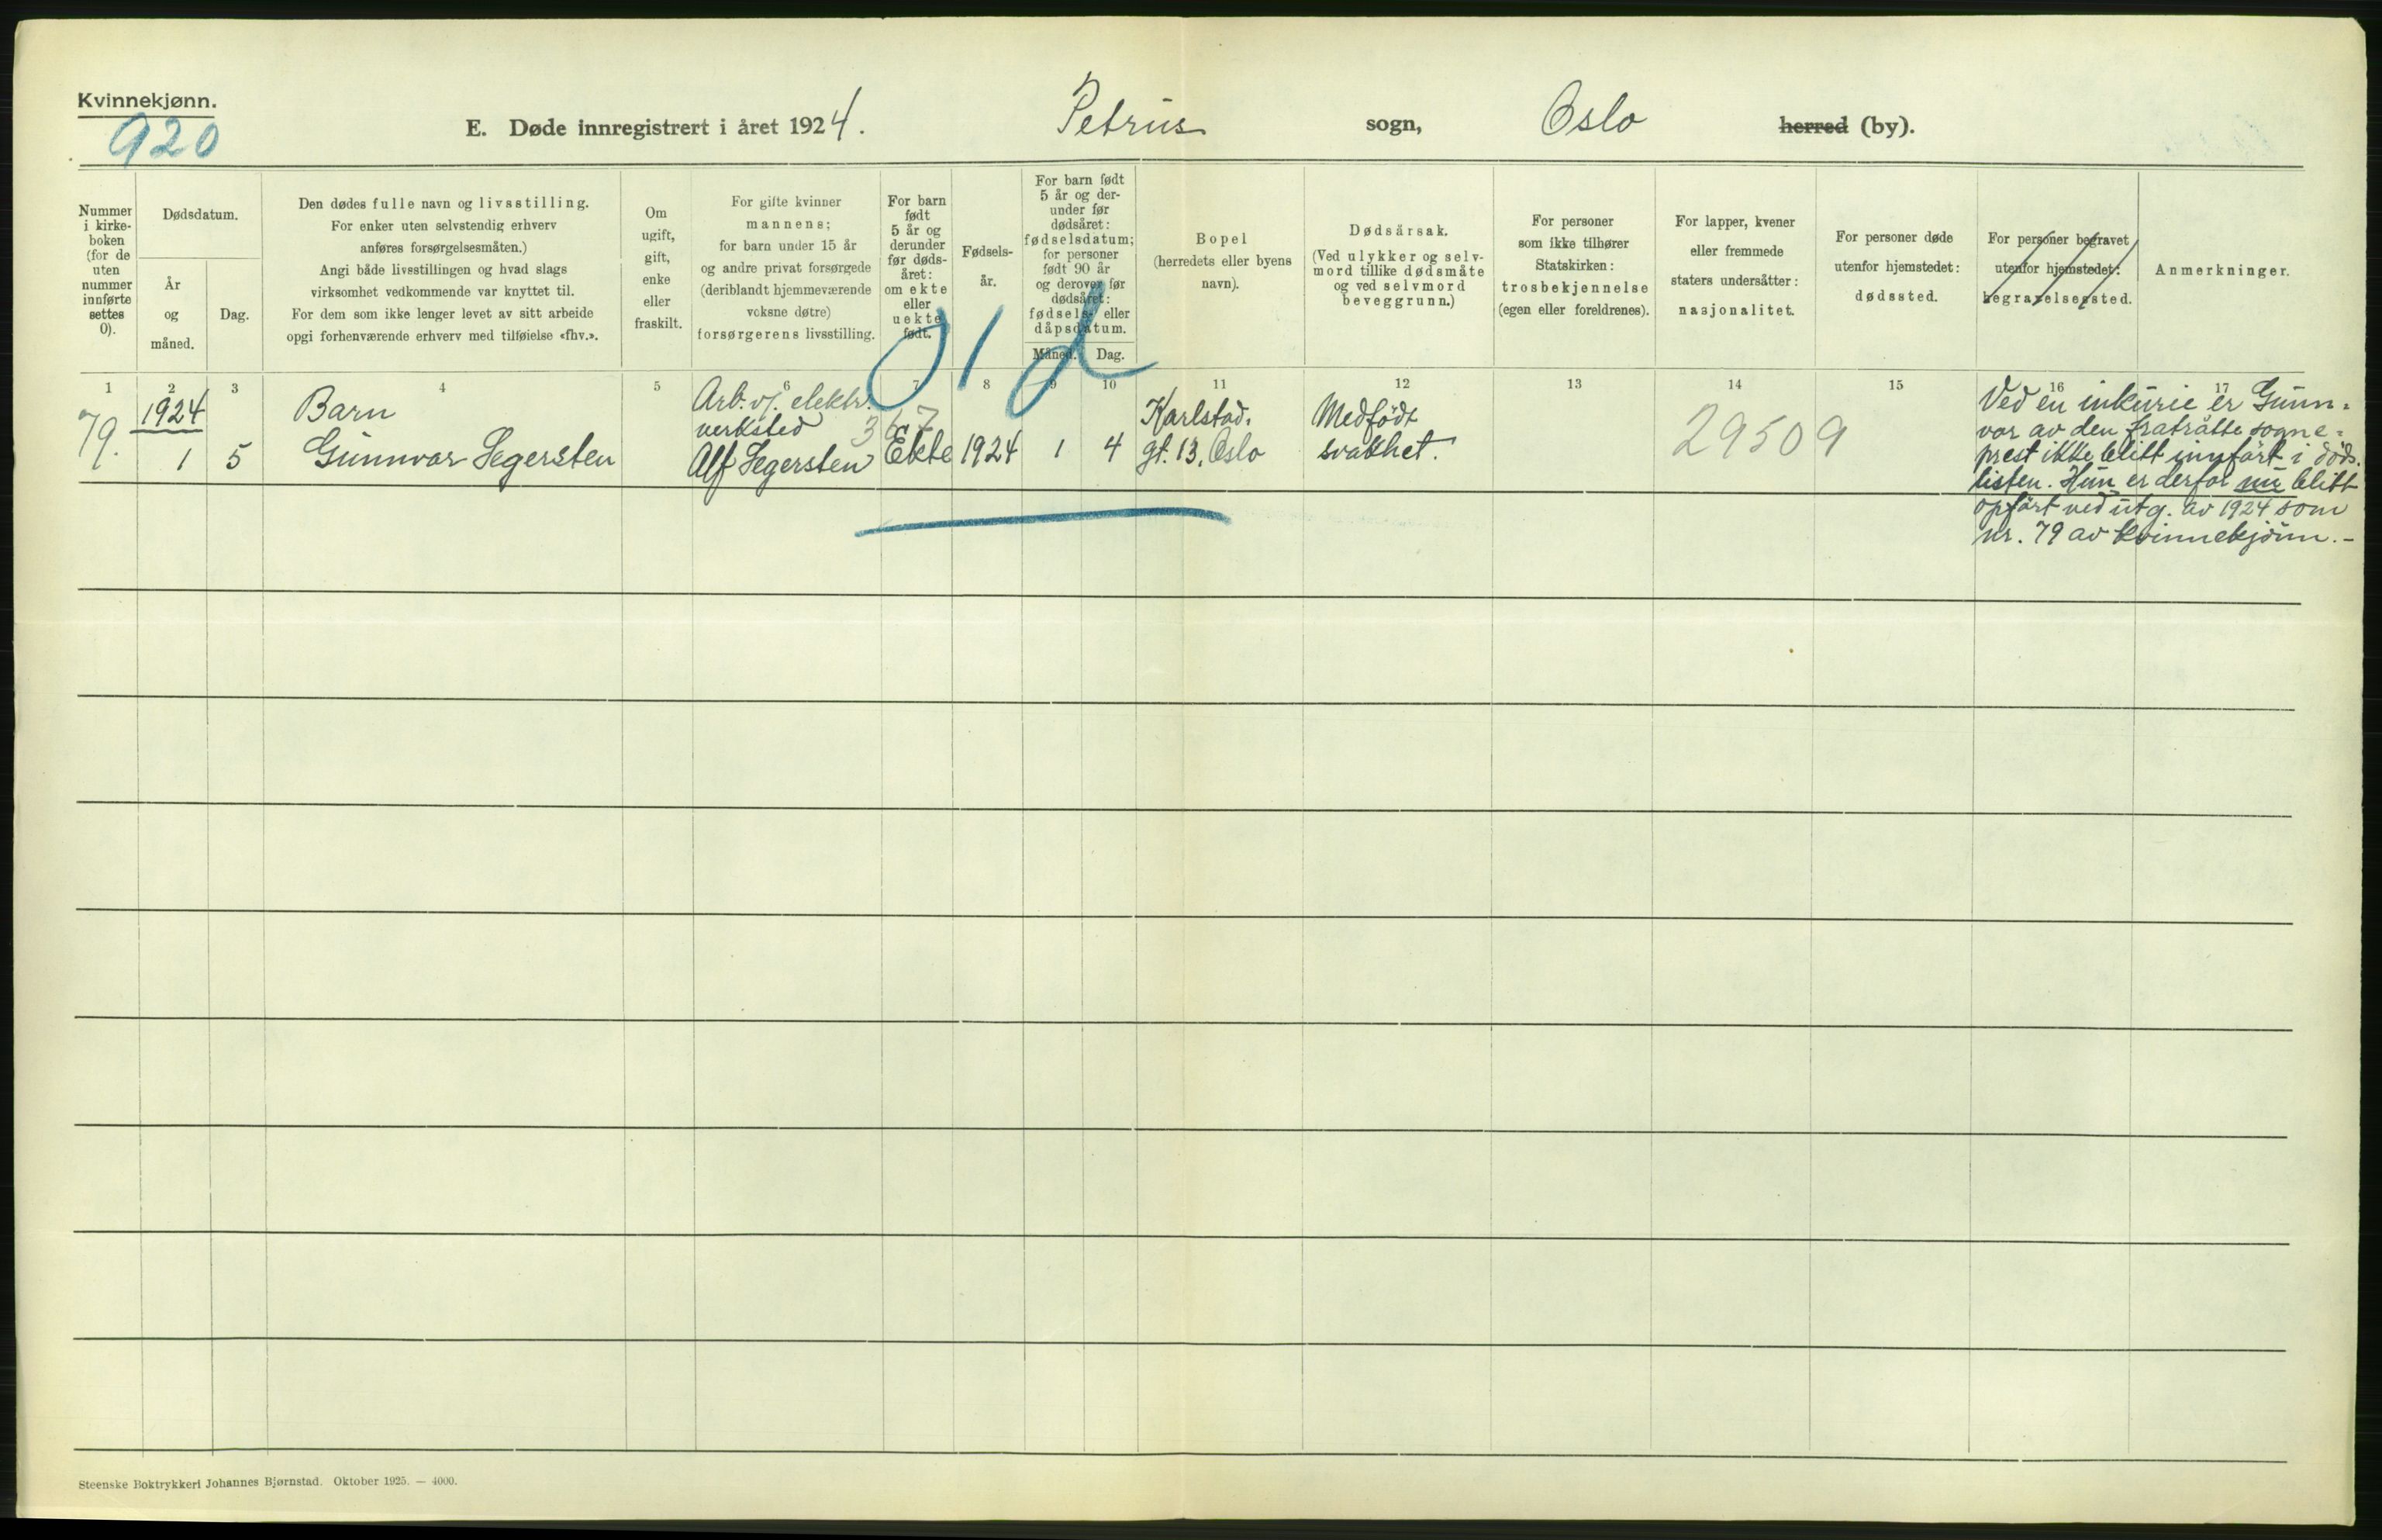 Kvinnekjønn.
920
E. Døde innregistrert i året 1924.
Petrus sogn, Oslo herred (by).
Nummer
i kirke-
boken
(for de
uten
nummer
innførte
settes
0).
Dødsdatum.
År
og
måned.
Dag.
Den dødes fulle navn og livsstilling.
For enker uten selvstendig erhverv
anføres forsørgelsesmåten.)
Angi både livsstillingen og hvad slags
virksomhet vedkommende var knyttet til.
For dem som ikke lenger levet av sitt arbeide
opgi forhenværende erhverv med tilføielse «fhv.».
Om
ugift,
gift,
enke
eller
fraskilt.
For gifte kvinner
mannens;
for barn under 15 år
og andre privat forsørgede
(deriblandt hjemmeværende
voksne døtre)
forsørgerens livsstilling.
For barn
født
5 år og
derunder
før døds-
året:
om ekte
eller
uekte
født.
Fødsels-
år.
For barn født
5 år og der-
under før
dødsåret:
fødselsdatum;
for personer
født 90 år
og derover før
dødsåret:
fødsels- eller
dåpsdatum.
Måned. Dag.
Bopel
(herredets eller byens
navn).
Dødsårsak.
(Ved ulykker og selv-
mord tillike dødsmåte
og ved selvmord
beveggrunn.)
For personer
som ikke tilhører
Statskirken:
trosbekjennelse
(egen eller foreldrenes).
For lapper, kvener
eller fremmede
staters undersåtter:
nasjonalitet.
For personer døde
utenfor hjemstedet:
dødssted.
For personer begravet
utenfor hjemstedet:
begravelsessted.
Anmerkninger.
1 2 3 4 5 6 7 8 9 10 11 12 13 14 15 16 17
79.
1924
1 5
Barn
Gunnvor Segersten
Arb. v/. elektr.
verksted
Alf Segersten
367
Ekte
1924 1 4
Karlstad.
gt. 13, Oslo
Medfödt
svakhet.
29509
Ved en inkurie er Gunn-
vor av den fraträtte sogne-
prest ikke blitt innfört i döds.
listen. Hun er derfor nu blitt
opfört ved utg. av 1924 som
nr. 79 av kvinnekjönn.-
Steenske Boktrykkeri Johannes Bjørnstad. Oktober 1925. — 4000.